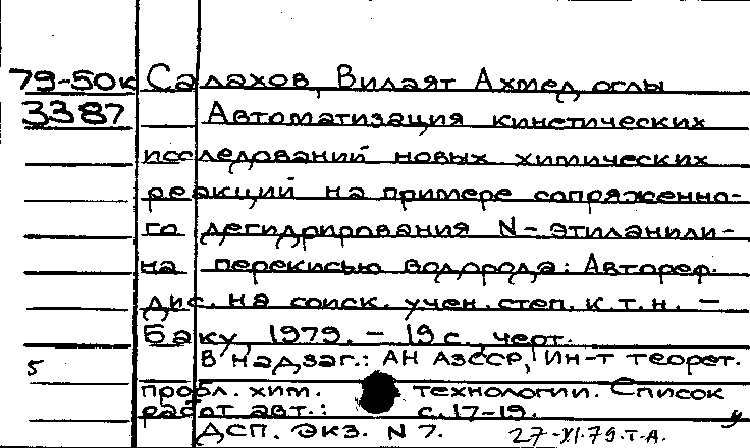 79-50к Салахов, Вилаят Ахмед оглы
3387 Автоматизация кинетических
исследований новых химических
реакций на примере сопряженно-
го дегидрирования N-этиланили-
на перекисью водорода: Автореф.
дис. на соиск. учен. степ. к.т.н. -
Баку, 1979. - 19 с., черт.
В надзаг.: АН АзССР, Ин-т теорет.
5
пробл. хим. технологии. Список
работ авт.: с. 17-19.
у
ДСП. Экз. N 7. 27-XI.79.Т-А.